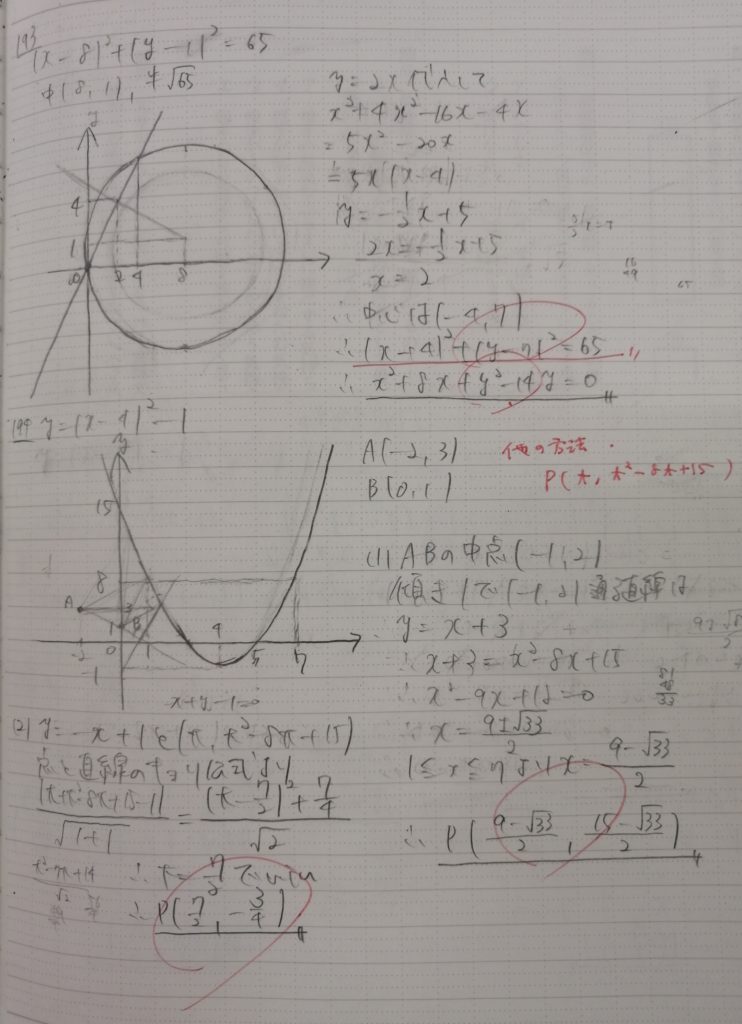 193
(x-8)²+(y-1)²=65
中(8,1), 半√65
y
4
1
0 2 4 8
y=2x 代入して
x²+4x²-16x-4x
=5x²-20x
=5x(x-4)
y=-1/2x+5
2x=-1/2x+5
x=2
∴中心は(-4,7)
∴(x+4)²+(y-7)²=65
∴x²+8x+y²-14y=0
194 y=(x-4)²-1
y
15
8
A 3
1 B
-2 0 1 4 5 7
-1
x+y-1=0
A(-2,3)
B(0,1)
他の方法.
P(t, t²-8t+15)
(1) ABの中点(-1,2)
傾き1で(-1,2)通る直線は
y=x+3
∴x+3=x²-8x+15
∴x²-9x+12=0
∴x=9±√33/2
1≦x≦7よりx=9-√33/2
∴P(9-√33/2, 15-√33/2)
(2) y=-x+1と(t, t²-8t+15)
点と直線のキョリ公式より
|t+t²-8t+15-1|/√1+1=(t-7/2)²+7/4/√2
t²-7t+14
√2
∴t=7/2で
∴P(7/2, -3/4)
81
48
33